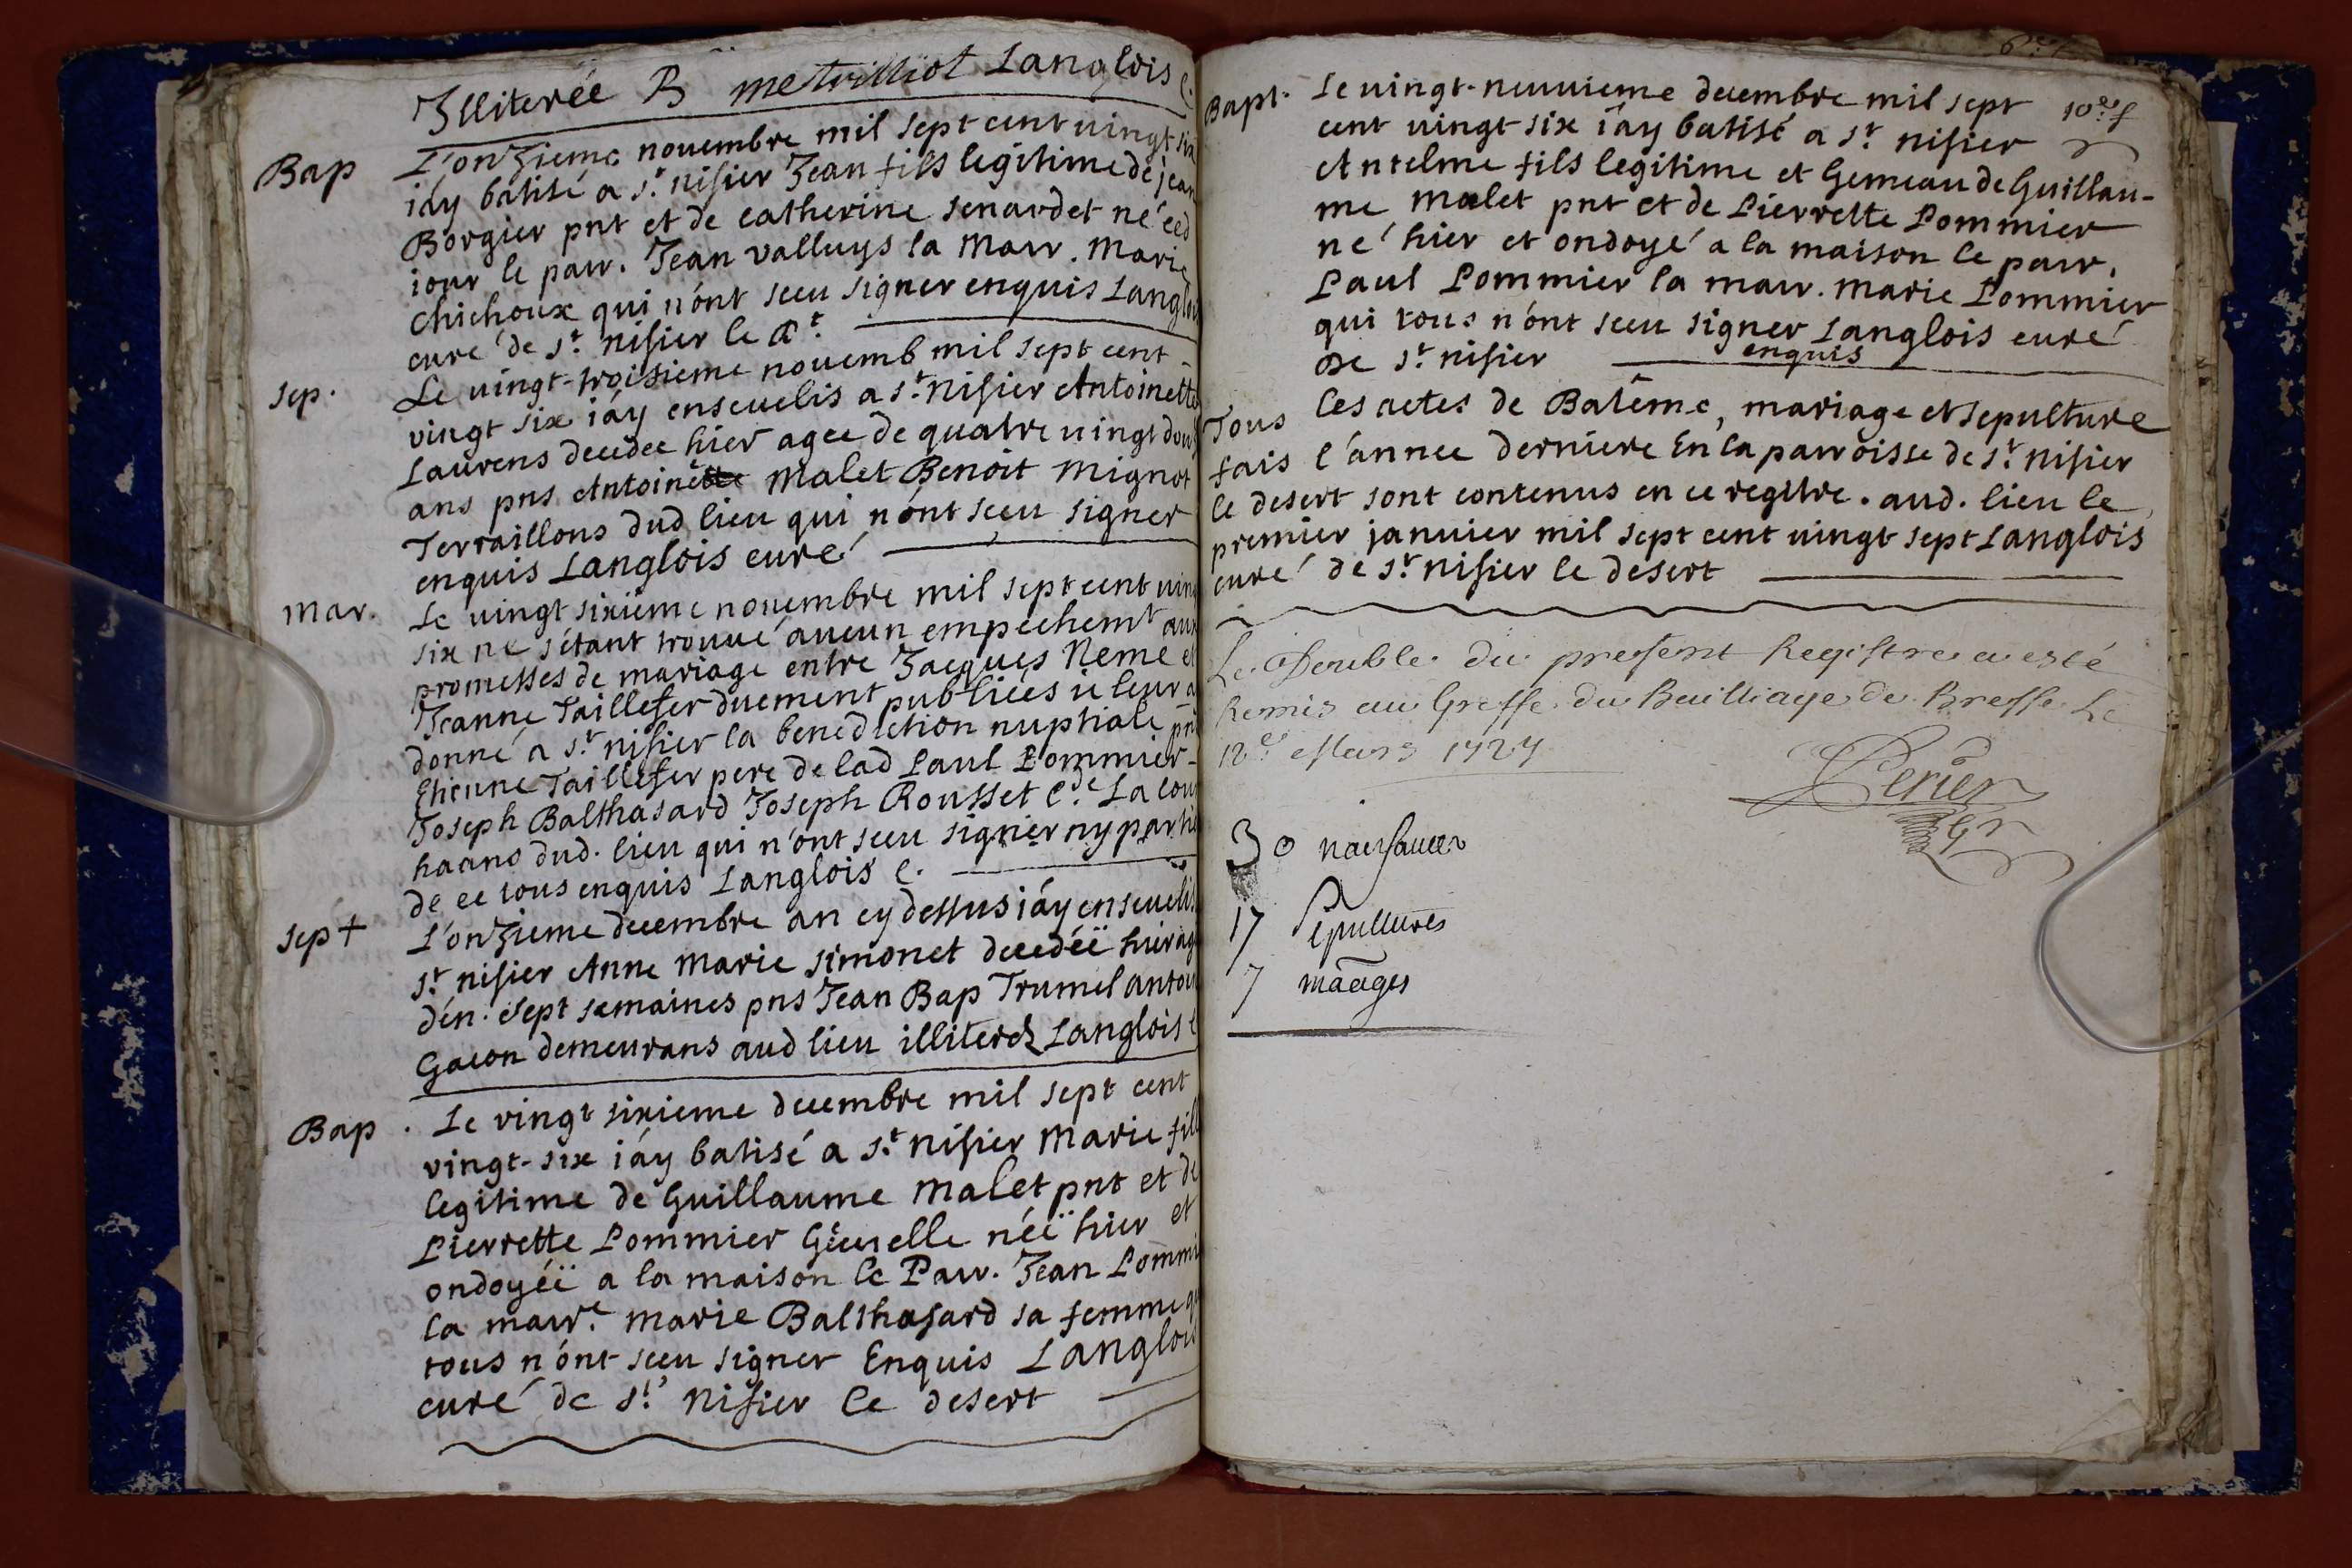 Illiterée B metrilliot Langlois c.
Bap L'onzieme novembre mil sept cent vingt six
j'ay batisé a st. nisier Jean fils legitime de jean
Borgier pnt et de catherine senardet né ced
jour le parr. Jean valluys la Marr. Marie
chichoux qui n'ont sceu signer enquis Langlois
curé de st. nisier le
sep. Le vingt-troisieme novemb mil sept cent
vingt six j'ay ensevelis a st. nisier Antoinette
Laurens decedee hier agee de quatre vingt douz
ans pns Antoine Malet Benoit Mignot
Terraillons dud lieu qui n'ont sceu signer
enquis Langlois curé
mar. Le vingt sixiême novembre mil sept cent vin
six ne s'étant trouvé aucun empechemt aux
promesses de mariage entre Jacques Neme et
Jeanne Taillefer duement publiées je leur a
donné a st. nisier la benediction nuptiale pn
Etienne Taillefer pere de lad Paul Pommier
Joseph Balthasard Joseph Rousset c.de La cou
haano dud. lieu qui n'ont sceu signer ny partie
de ce tous enquis Langlois c.
sep + L'onzieme decembre an cy dessus j'ay ensevelis
st. nisier Anne Marie simonet decedéë hier ag
d'en. sept semaines pns Jean Bap Trumel antoin
Gacon demeurans aud lieu illiterés Langlois c
Bap . Le vingt sixieme decembre mil sept cent
vingt-six j'ay batisé a st. nisier Marie fill
legitime de Guillaume Malet pnt et de
Pierrette Pommier Gemelle néë hier et
ondoyéë a la maison le Parr. Jean Pommi
la marr.e marie Balthasard sa femme q
tous n'ont sceu signer Enquis Langlois
curé de st. Nisier le desert
10e. f
Bapt. Le vingt-neuvieme decembre mil sept
cent vingt six j'ay batisé a st. nisier
Antelme fils legitime et Gemeau de Guillau-
me Malet pnt et de Pierrette Pommier
né hier et ondoyé a la maison le parr.
Paul Pommier la marr. Marie Pommier
qui tous n'ont sceu signer Langlois curé
de st. nisier enquis
Tous les actes de Batême, mariage et sepulture
fais l'annee derniere En la parroisse de st. nisier
le desert sont contenus en ce regitre. aud. lieu le
premier janvier mil sept cent vingt sept Langlois
curé de st. nisier le desert
Le Double du present Registre a esté
Remis au Greffe du Bailliage de Bresse Le
12e. Mars 1727
Perier
Gr
30 naissances
17 sepultures
7 maāges